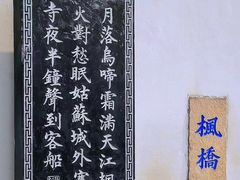 月落烏啼霜滿天江楓
火對愁眠姑蘇城外寒
寺夜半鐘聲到客船
楓橋